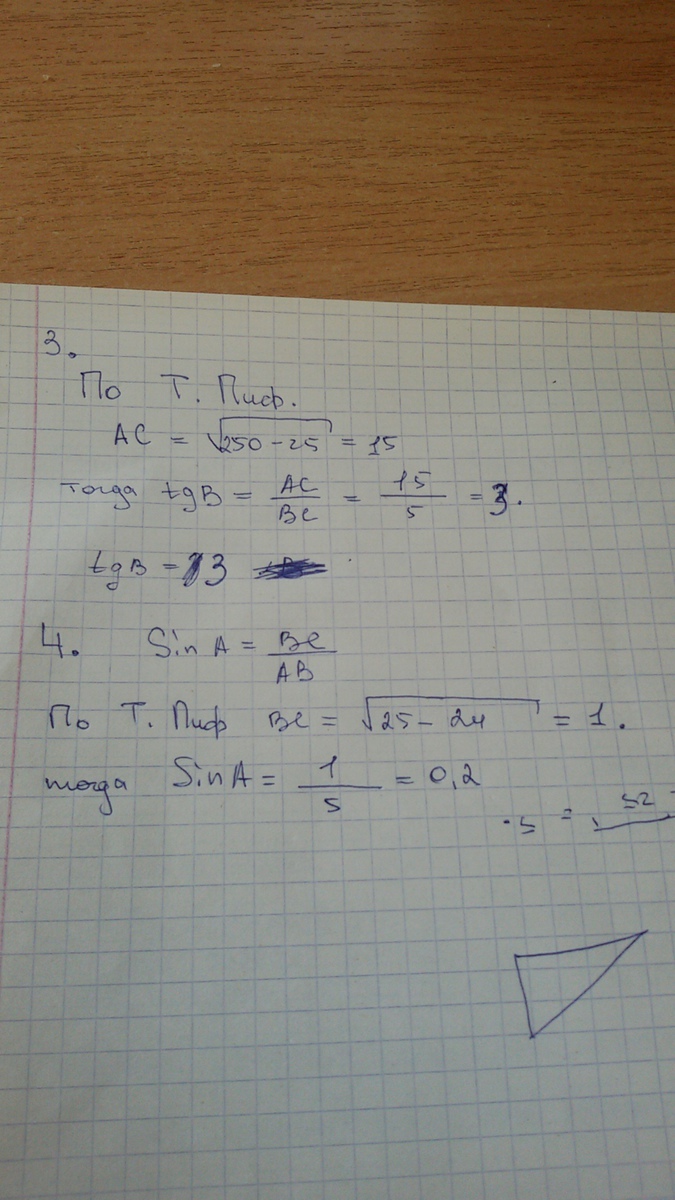 3.
По Т. Пиф.
AC = √250-25 = 15
тогда tgB = AC/BC = 15/5 = 3.
tgB = 3
4. Sin A = BC/AB
По Т. Пиф BC = √25-24 = 1.
тогда Sin A = 1/5 = 0,2